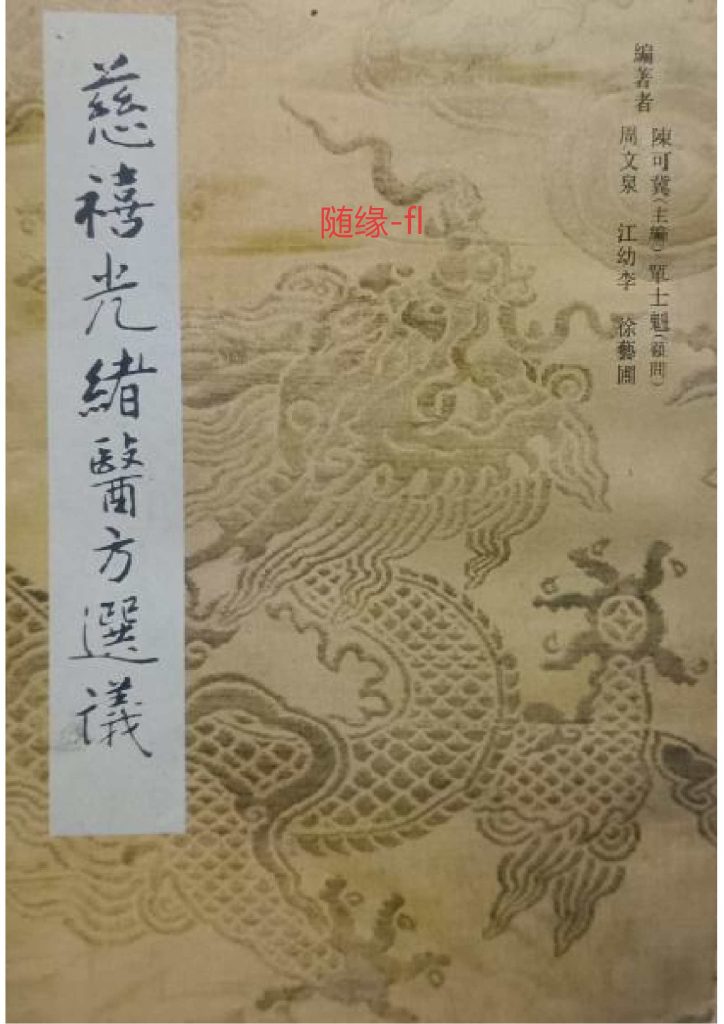 編著者
陳可冀(主編) 單士魁(顧問)
周文泉 江幼李 徐藝圃
慈禧光緒醫方選議
随缘-fl